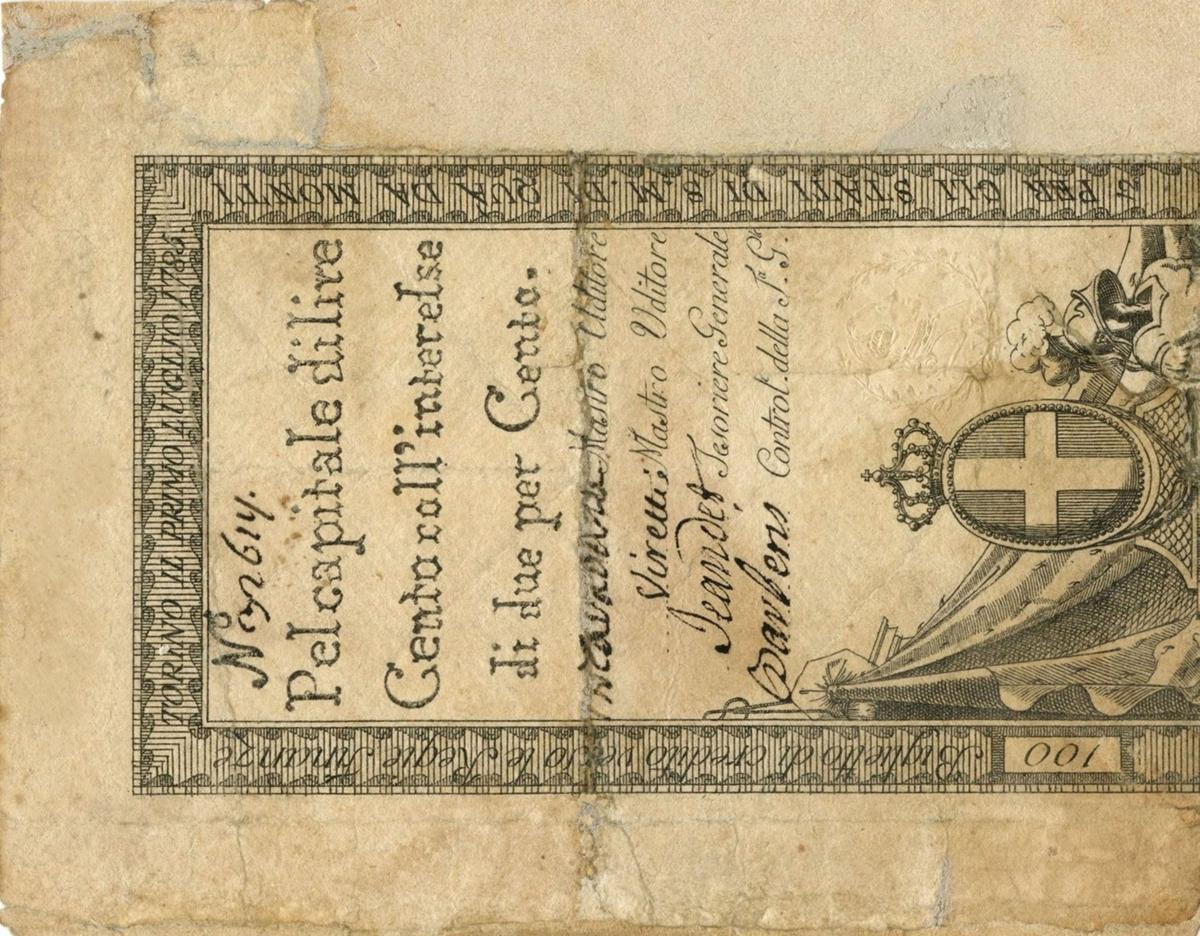 TORINO IL PRIMO LUGLIO 1786.
N.º 32614.
Pel capitale di lire
Cento coll'interesse
di due per Cento.
Mastro Uditore
Viretti Mastro Uditore
Tesoriere Generale
Control. della T.ª G.le
Biglietto di credito verso le Regie Finanze
100
PER GLI STATI DI S.M. DI QUÀ DA MONTI